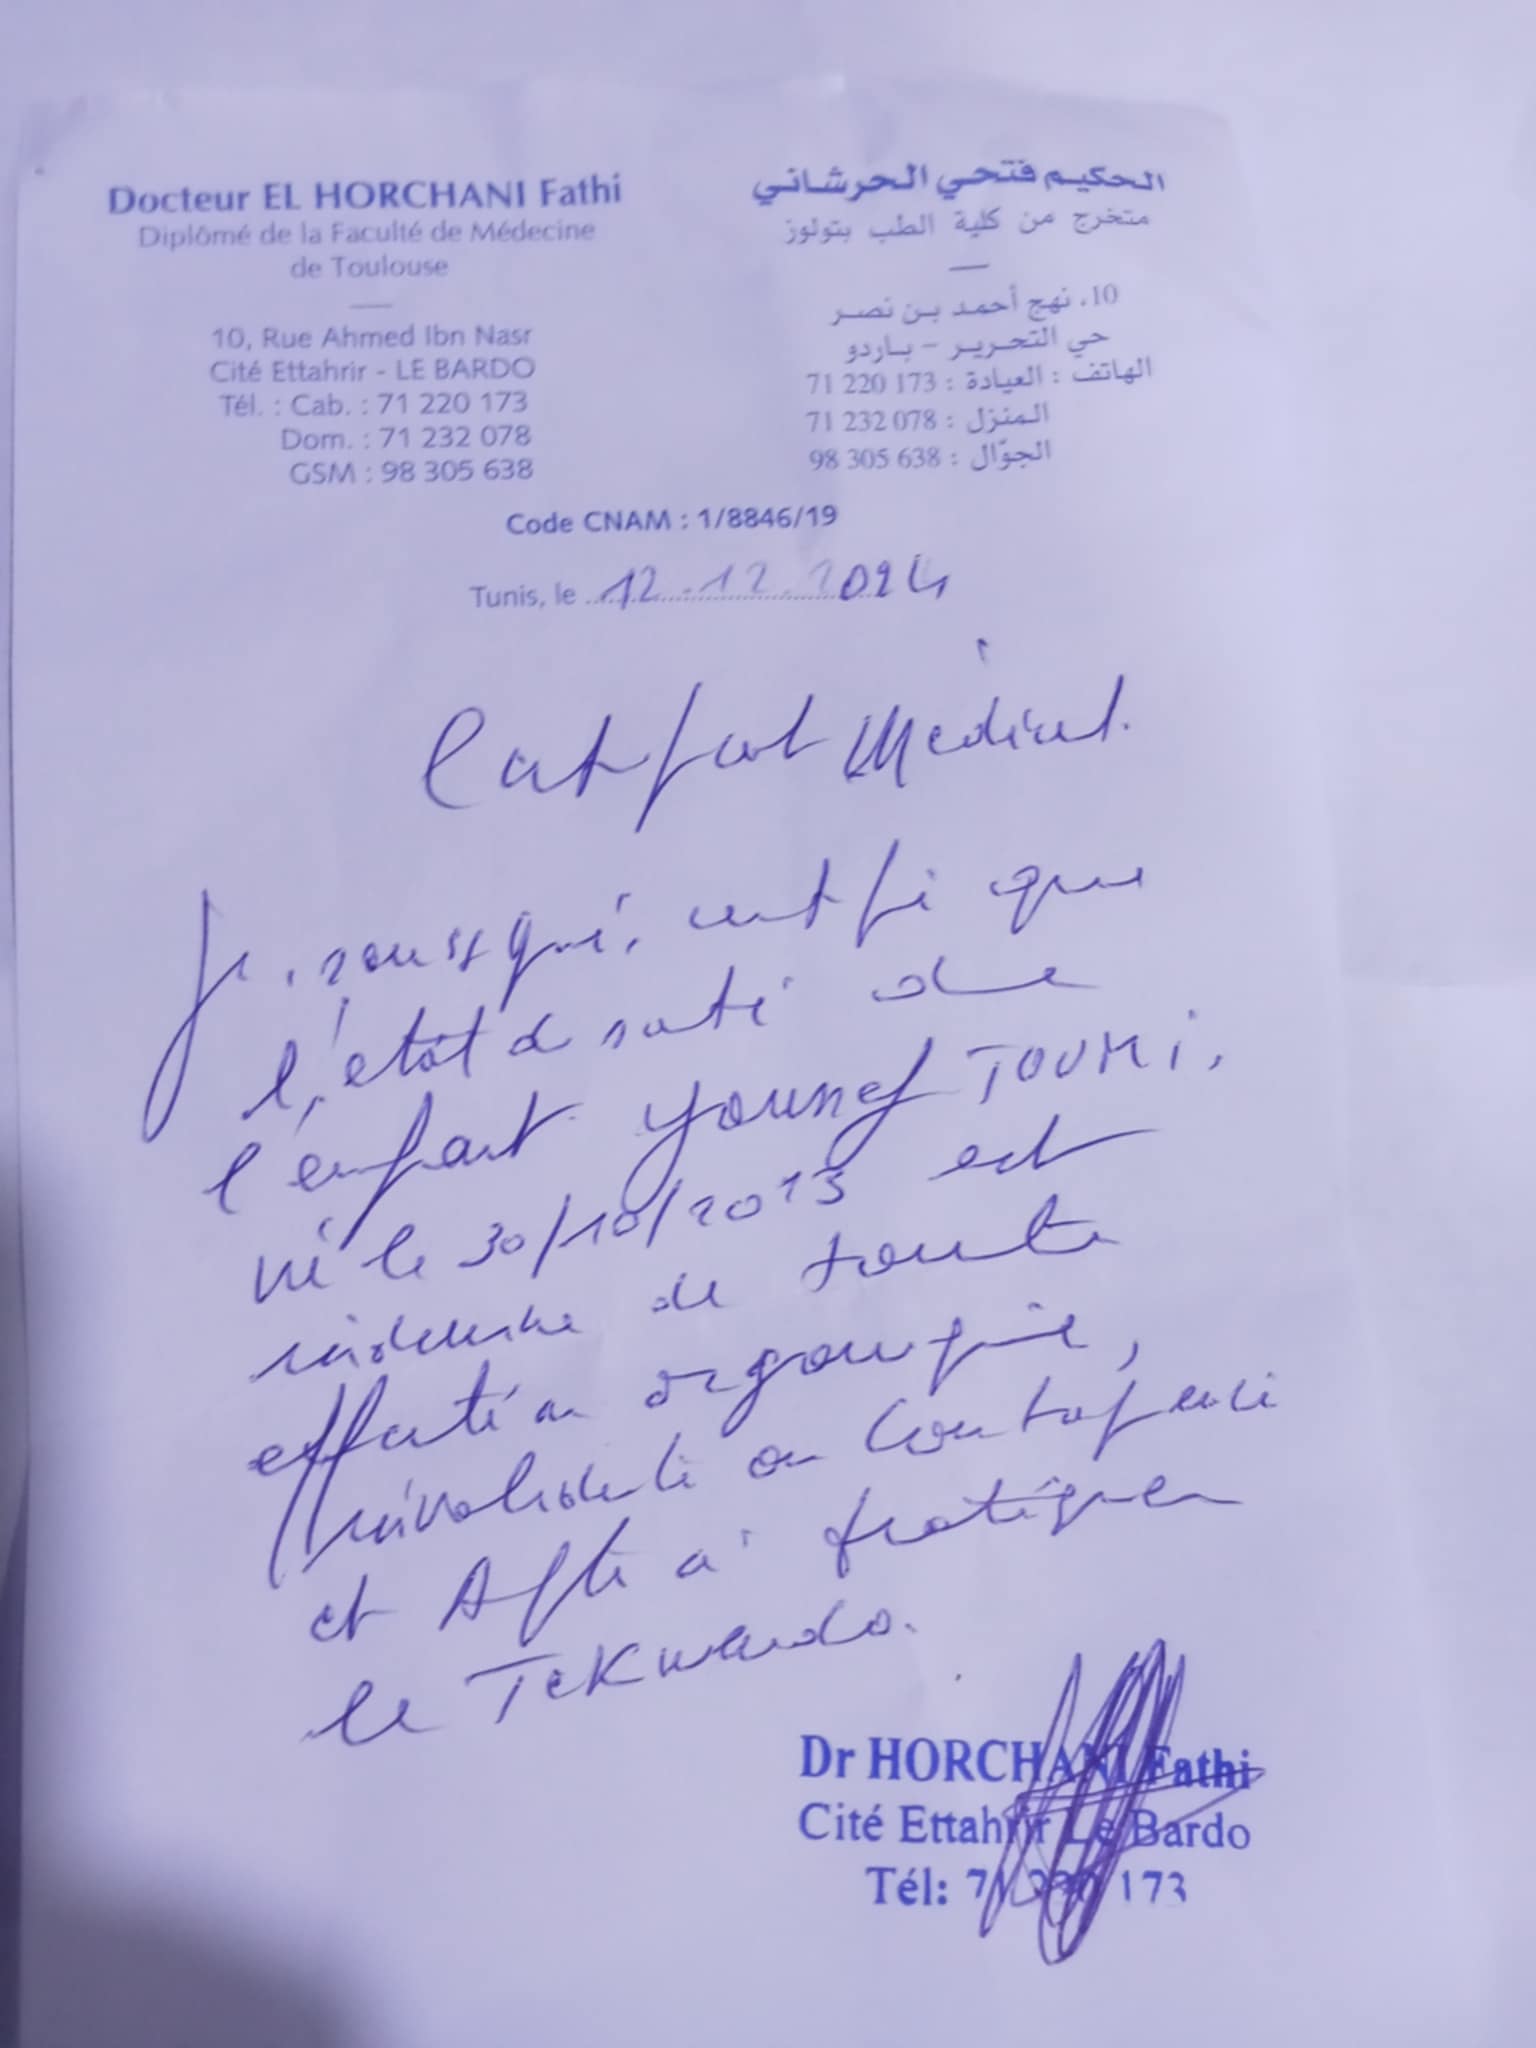 Docteur EL HORCHANI Fathi
Diplômé de la Faculté de Médecine
de Toulouse
10, Rue Ahmed Ibn Nasr
Cité Ettahrir - LE BARDO
Tél. : Cab. : 71 220 173
Dom. : 71 232 078
GSM : 98 305 638
الحكيم فتحي الحرشاني
متخرج من كلية الطب بتولوز
10، نهج أحمد بن نصر
حي التحرير - باردو
الهاتف : العيادة : 71 220 173
المنزل : 71 232 078
الجوّال : 98 305 638
Code CNAM : 1/8846/19
Tunis, le 12.12.2024
Certificat Médical.
Je, soussigné, certifie que
l'état de santé de
l'enfant Youssef TOUMI,
né le 30/10/2013 est
indemne de toute
affection organique,
invalidante ou contagieuse
et Apte à pratiquer
le Tekwendo.
Dr HORCHANI Fathi
Cité Ettahrir Le Bardo
Tél: 71 220 173